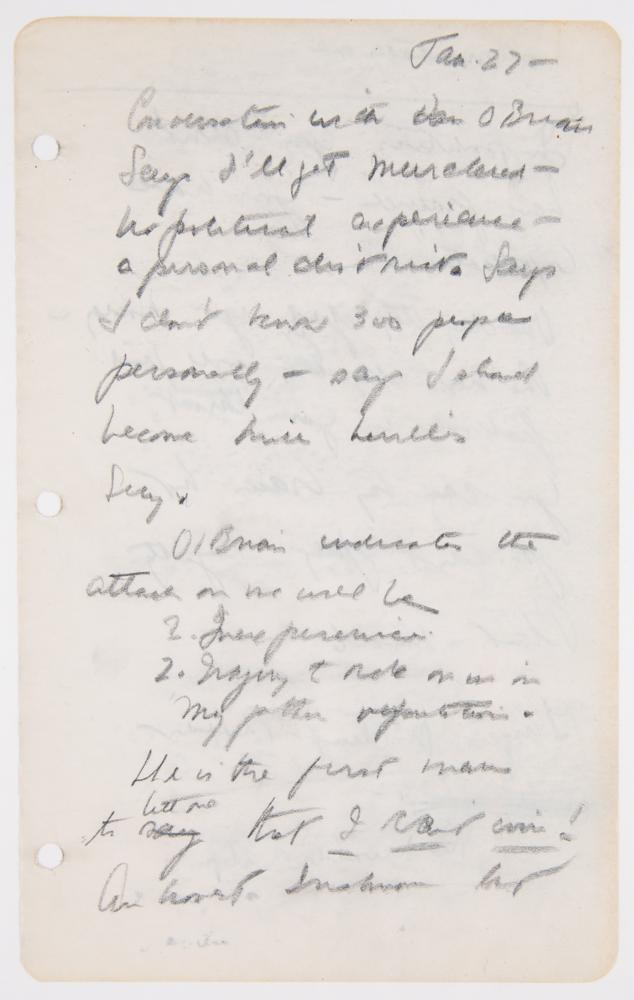 Jan. 27 –
Conversation with Dan O'Brien
Says I'll get murdered –
No political experience –
a personal district. Says
I don't know 300 people
personally – says I should
become Mike Neville's
Secy.
O'Brien indicates the
attack on me will be
1. Inexperience
2. on me in
my father reputation.
He is the first man
to tell me that I can't win!
An honest Irishman but